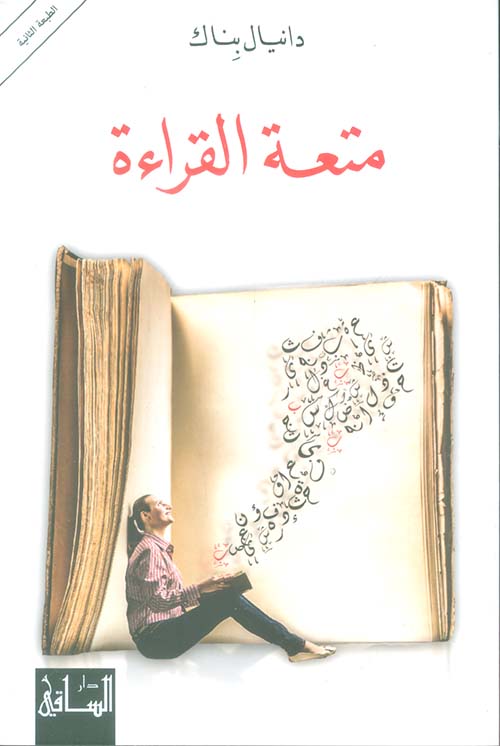 الطبعة الثانية
دانيال بِناك
متعة القراءة
دار
الساقي